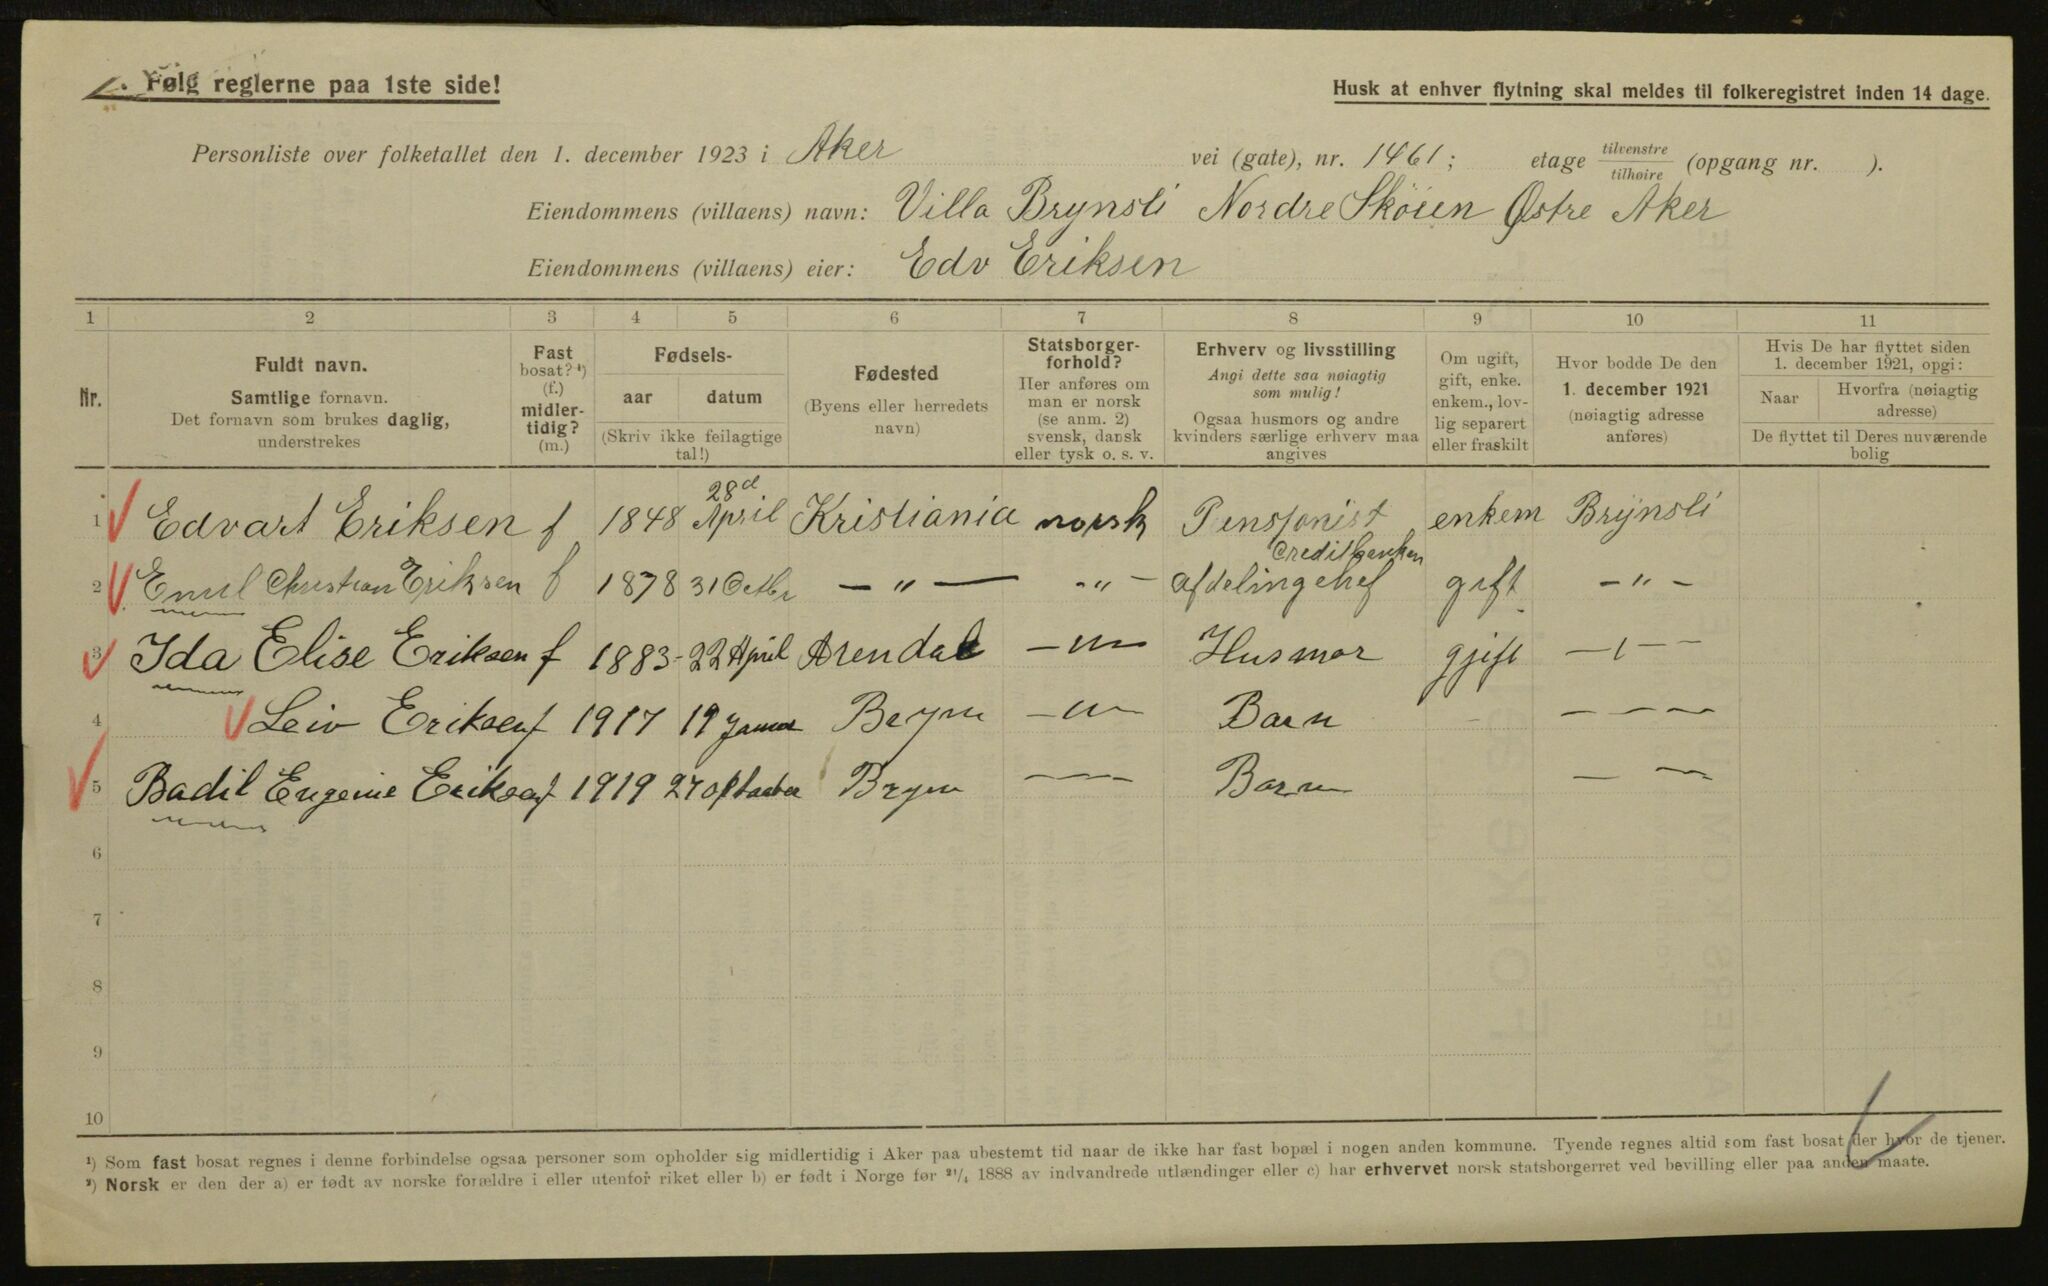 Følg reglerne paa 1ste side!
Husk at enhver flytning skal meldes til folkeregistret inden 14 dage.
Personliste over folketallet den 1. december 1923 i Aker vei (gate), nr. 1461; etage tilvenstre tilhøire (opgang nr. ).
Eiendommens (villaens) navn: Villa Brynsli Nordre Skøien Østre Aker
Eiendommens (villaens) eier: Edv Eriksen
1 2 3 4 5 6 7 8 9 10 11
Nr.
Fuldt navn.
Samtlige fornavn.
Det fornavn som brukes daglig,
understrekes
Fast
bosat? ¹)
(f.)
midler-
tidig?
(m.)
Fødsels-
aar datum
(Skriv ikke feilagtige
tal!)
Fødested
(Byens eller herredets
navn)
Statsborger-
forhold?
Her anføres om
man er norsk
(se anm. 2)
svensk, dansk
eller tysk o. s. v.
Erhverv og livsstilling
Angi dette saa nøiagtig
som mulig!
Ogsaa husmors og andre
kvinders særlige erhverv maa
angives
Om ugift,
gift, enke.
enkem., lov-
lig separert
eller fraskilt
Hvor bodde De den
1. december 1921
(nøiagtig adresse
anføres)
Hvis De har flyttet siden
1. december 1921, opgi:
Naar
Hvorfra (nøiagtig
adresse)
De flyttet til Deres nuværende
bolig
28d
1 Edvart Eriksen f 1848 April Kristiania norsk Pensjonist enkem Brynsli
Creditbanken
2 Emil Christian Eriksen f 1878 31 Octbr — „ — - „ - afdelingchef gift - „ -
3 Ida Elise Eriksen f 1883 - 22 April Arendal — „ — Husmor gjift — „ —
4 Leiv Eriksen f 1917 19 Bryn — „ — Barn — — —
5 Badil Eugenie Eriksen f 1919 27 Bryn — — Barn — —
6
7
8
9
10
¹) Som fast bosat regnes i denne forbindelse ogsaa personer som opholder sig midlertidig i Aker paa ubestemt tid naar de ikke har fast bopæl i nogen anden kommune. Tyende regnes altid som fast bosat der hvor de tjener.
²) Norsk er den der a) er født av norske forældre i eller utenfor riket eller b) er født i Norge før ²¹/₄ 1888 av indvandrede utlændinger eller c) har erhvervet norsk statsborgerret ved bevilling eller paa anden maate.